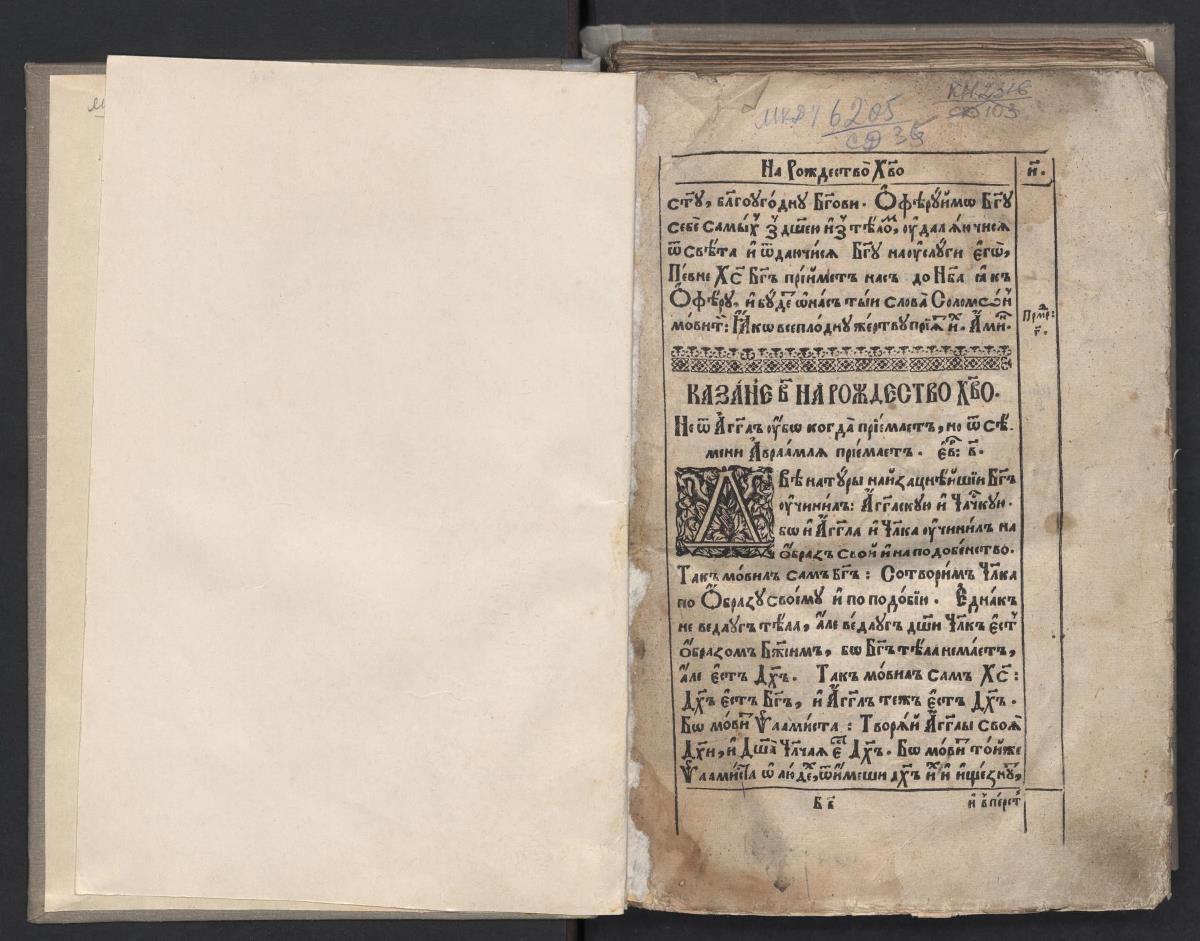 МКДУ 6205
СД 36
КН.2316
СД 103
На Рожⷣество̀ Хв҃о
и҃.
ст҃у, бл҃гоуго́дну Бг҃ови. Ѻ҆фѣру́ймѡ Бг҃у
себѐ самы́хъ зъ дш҃ею и҆ зъ тѣ́ломъ, ѹ҆даля́ючися
ѿ свѣ́та и҆ ѿдаючи́ся Бг҃у на ѹ҆слу́ги є҆гѡ̀,
Пе́вне Хс҃ Бг҃ъ прі́йметъ насъ до Нб҃а ꙗ҆къ
Ѻ҆фѣ́ру, и҆ бу́де ѡ҆ насъ тыи слова̀ Соломѡ́
мо́витъ: Ꙗ҆́кѡ всепло́дну же́ртву прїѧ́ и҆́хъ. А҆ми́нь.
Прⷨе:
г҃.
КАЗА́НЇЕ в҃ НА РОЖДЕСТВО Хв҃О.
Не ѿ А҆́гг҃лъ ѹ҆́бѡ когда̀ прїе́маетъ, но ѿ сѣ́-
мени А҆враа́млѧ прїе́маетъ. є҆в: в҃.
ДВѣ нату́ры найзацнѣ́йшїи Бг҃ъ
ѹ҆чини́лъ: А҆́гг҃лскую и҆ Чл҃чкую.
бѡ и҆ А҆́гг҃ла и҆ Чл҃ка ѹ҆чини́лъ на
ѻ҆́бразъ сво́й и҆ на подобе́нство.
Такъ мо́вилъ самъ Бг҃ъ: Сотвори́мъ Чл҃ка
по Ѻ҆́бразу своє́му и҆ по подо́бїи. Є҆дна́къ
не ведлугъ тѣ́ла, а҆́ле ве́длугъ дш҃и Чл҃къ є҆́стъ
ѻ҆́бразомъ Бж҃іимъ, бѡ Бг҃ъ тѣ́ла не ма́етъ,
а҆́ле є҆́стъ Дх҃ъ. Такъ мо́вилъ самъ Хс҃:
Дх҃ъ є҆́стъ Бг҃ъ, и҆ А҆́гг҃лъ тежъ є҆́стъ Дх҃ъ.
Бѡ мо́ви Ѱалми́ста: Творѧ́й А҆́гг҃лы своѧ̀
Дх҃и, и҆ Дш҃а̀ Чл҃чаѧ є҆́стъ Дх҃ъ. Бѡ мо́ви то́йже
Ѱалми́ста ѡ҆ лю́дехъ, ѿи́меши дх҃ъ и҆́хъ и҆ и҆ще́знутъ,
Б в҃
и҆ в пе́рсть